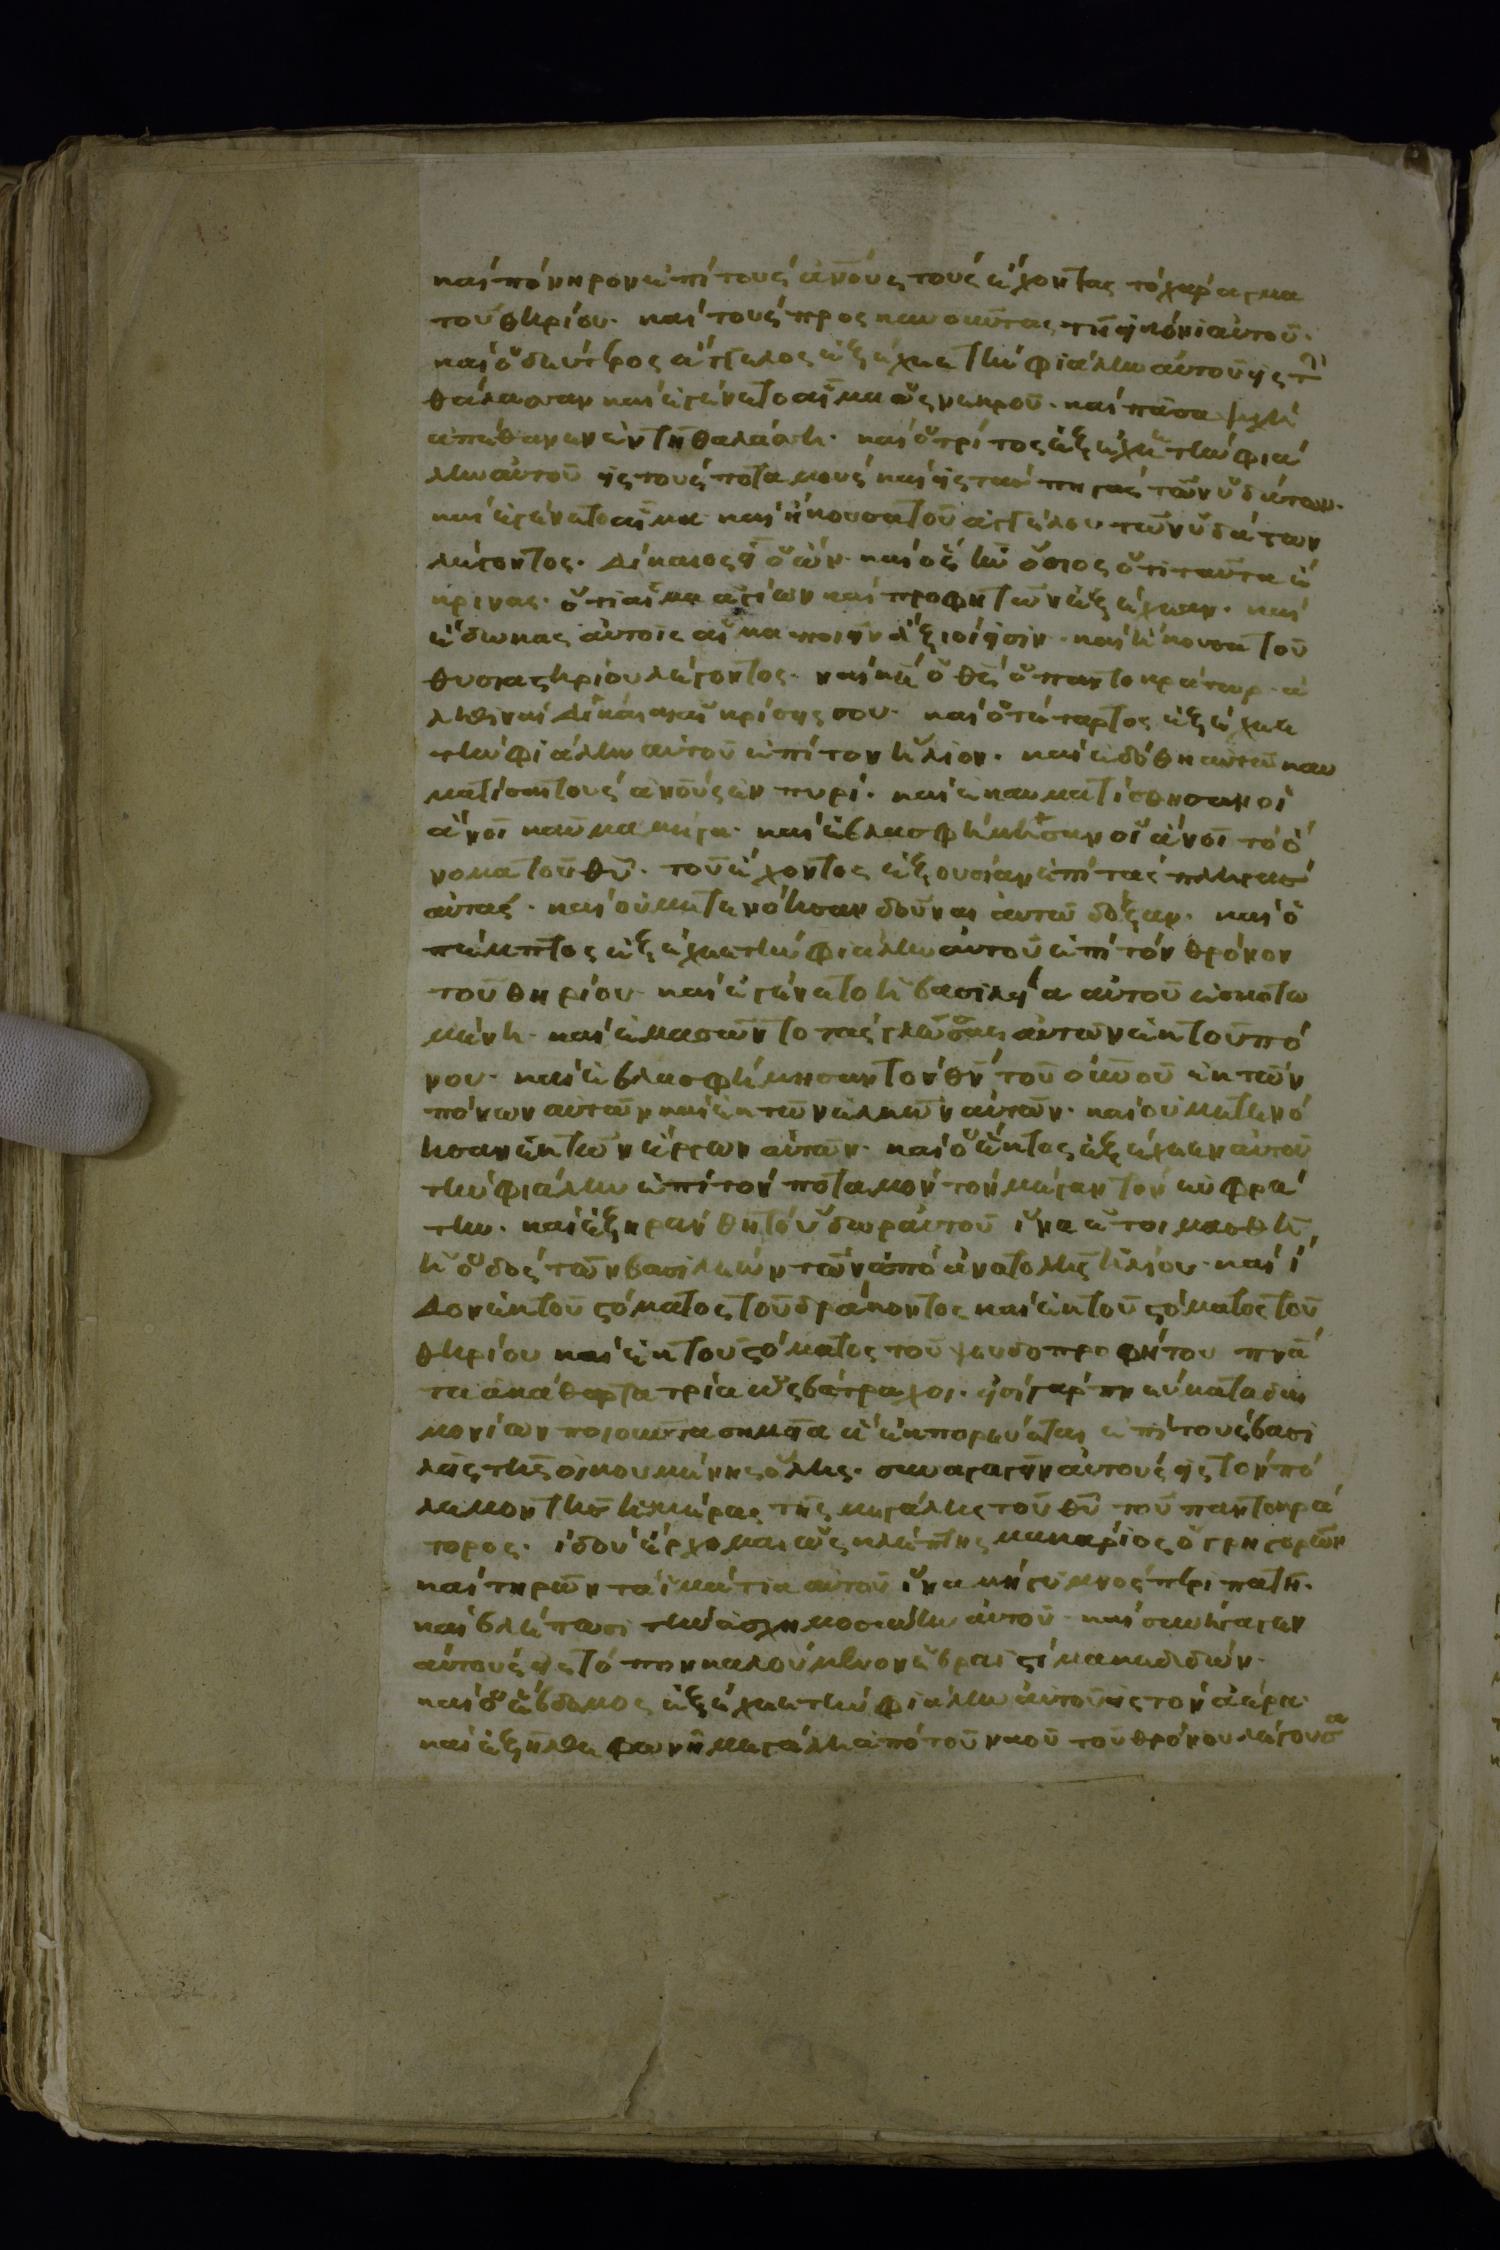 καὶ πόνηρον ἐπὶ τοὺς ἀνούς τοὺς ἔχοντας τὸ χάραγμα
τοῦ θηρίου· καὶ τοὺς προσκυνοῦντας τῇ εἰκόνι αὐτοῦ·
καὶ ὁ δεύτερος ἄγγελος ἐξέχεε τὴν φιάλην αὐτοῦ εἰς τὴν
θάλασσαν καὶ ἐγένετο αἷμα ὡς νεκροῦ· καὶ πᾶσα ψυχὴ
ἀπέθανεν ἐν τῇ θαλάσσῃ· καὶ ὁ τρίτος ἐξέχεε τὴν φιά
λην αὐτοῦ εἰς τοὺς ποταμοὺς καὶ εἰς τὰς πηγὰς τῶν ὑδάτων·
καὶ ἐγένετο αἷμα καὶ ἤκουσα τοῦ ἀγγέλου τῶν ὑδάτων
λέγοντος· Δίκαιος εἶ ὁ ὢν καὶ ὁ ἦν ὅσιος ὅτι ταῦτα ἔ
κρινας· ὅτι αἷμα ἁγίων καὶ προφητῶν ἐξέχεαν· καὶ
ἔδωκας αὐτοῖς αἷμα ποιεῖν ἄξιοί εἰσιν· καὶ ἤκουσα τοῦ
θυσιαστηρίου λέγοντος· ναὶ κε ὁ θς ὁ παντοκράτωρ· ἀ
ληθιναὶ δίκαιαι αἱ κρίσεις σου· καὶ ὁ τέταρτος ἐξέχεε
τὴν φιάλην αὐτοῦ ἐπὶ τὸν ἥλιον· καὶ ἐδόθη αὐτῷ καυ
ματίσαι τοὺς ἀνούς ἐν πυρί· καὶ ἐκαυματίσθησαν οἱ
ἄνοι καῦμα μέγα· καὶ ἐβλασφήμησαν οἱ ἄνοι τὸ ὄ
νομα τοῦ θυ· τοῦ ἔχοντος ἐξουσίαν ἐπὶ τὰς πληγὰς
αὐτάς· καὶ οὐ μετενόησαν δοῦναι αὐτῷ δόξαν· καὶ ὁ
πέμπτος ἐξέχεε τὴν φιάλην αὐτοῦ ἐπὶ τὸν θρόνον
τοῦ θηρίου· καὶ ἐγένετο ἡ βασιλεία αὐτοῦ ἐσκοτω
μένη· καὶ ἐμασῶντο τὰς γλώσσας αὐτῶν ἐκ τοῦ πό
νου· καὶ ἐβλασφήμησαν τὸν θν τοῦ οὐνοῦ ἐκ τῶν
πόνων αὐτῶν καὶ ἐκ τῶν ἑλκῶν αὐτῶν· καὶ οὐ μετενό
ησαν ἐκ τῶν ἔργων αὐτῶν· καὶ ὁ ἕκτος ἐξέχεεν αὐτοῦ
τὴν φιάλην ἐπὶ τὸν ποταμὸν τὸν μέγαν τὸν εὐφρά
την· καὶ ἐξηράνθη τὸ ὕδωρ αὐτοῦ ἵνα ἑτοιμασθῇ
ἡ ὁδὸς τῶν βασιλέων τῶν ἀπὸ ἀνατολῆς ἡλίου· καὶ ἴ
δον ἐκ τοῦ στόματος τοῦ δράκοντος καὶ ἐκ τοῦ στόματος τοῦ
θηρίου καὶ ἐκ τοῦ στόματος τοῦ ψευδοπροφήτου πνά
τα ἀκάθαρτα τρία ὡς βάτραχοι· εἰσὶ γὰρ πνεύματα δαι
μονίων ποιοῦντα σημεῖα ἃ ἐκπορεύεται ἐπὶ τοὺς βασι
λεῖς τῆς οἰκουμένης ὅλης· συναγαγεῖν αὐτοὺς εἰς τὸν πό
λεμον τῆς ἡμέρας τῆς μεγάλης τοῦ θυ τοῦ παντοκρά
τορος· ἰδοὺ ἔρχομαι ὡς κλέπτης μακάριος ὁ γρηγορῶν
καὶ τηρῶν τὰ ἱμάτια αὐτοῦ ἵνα μὴ γυμνὸς περιπατῇ·
καὶ βλέπωσι τὴν ἀσχημοσύνην αὐτοῦ· καὶ συνήγαγεν
αὐτοὺς εἰς τὸ πον καλούμενον ἑβραϊστί μακεδιδών·
καὶ ὁ ἕβδομος ἐξέχεε τὴν φιάλην αὐτοῦ εἰς τὸν ἀέρα
καὶ ἐξῆλθε φωνὴ μεγάλη ἀπὸ τοῦ ναοῦ τοῦ θρόνου λέγουσα